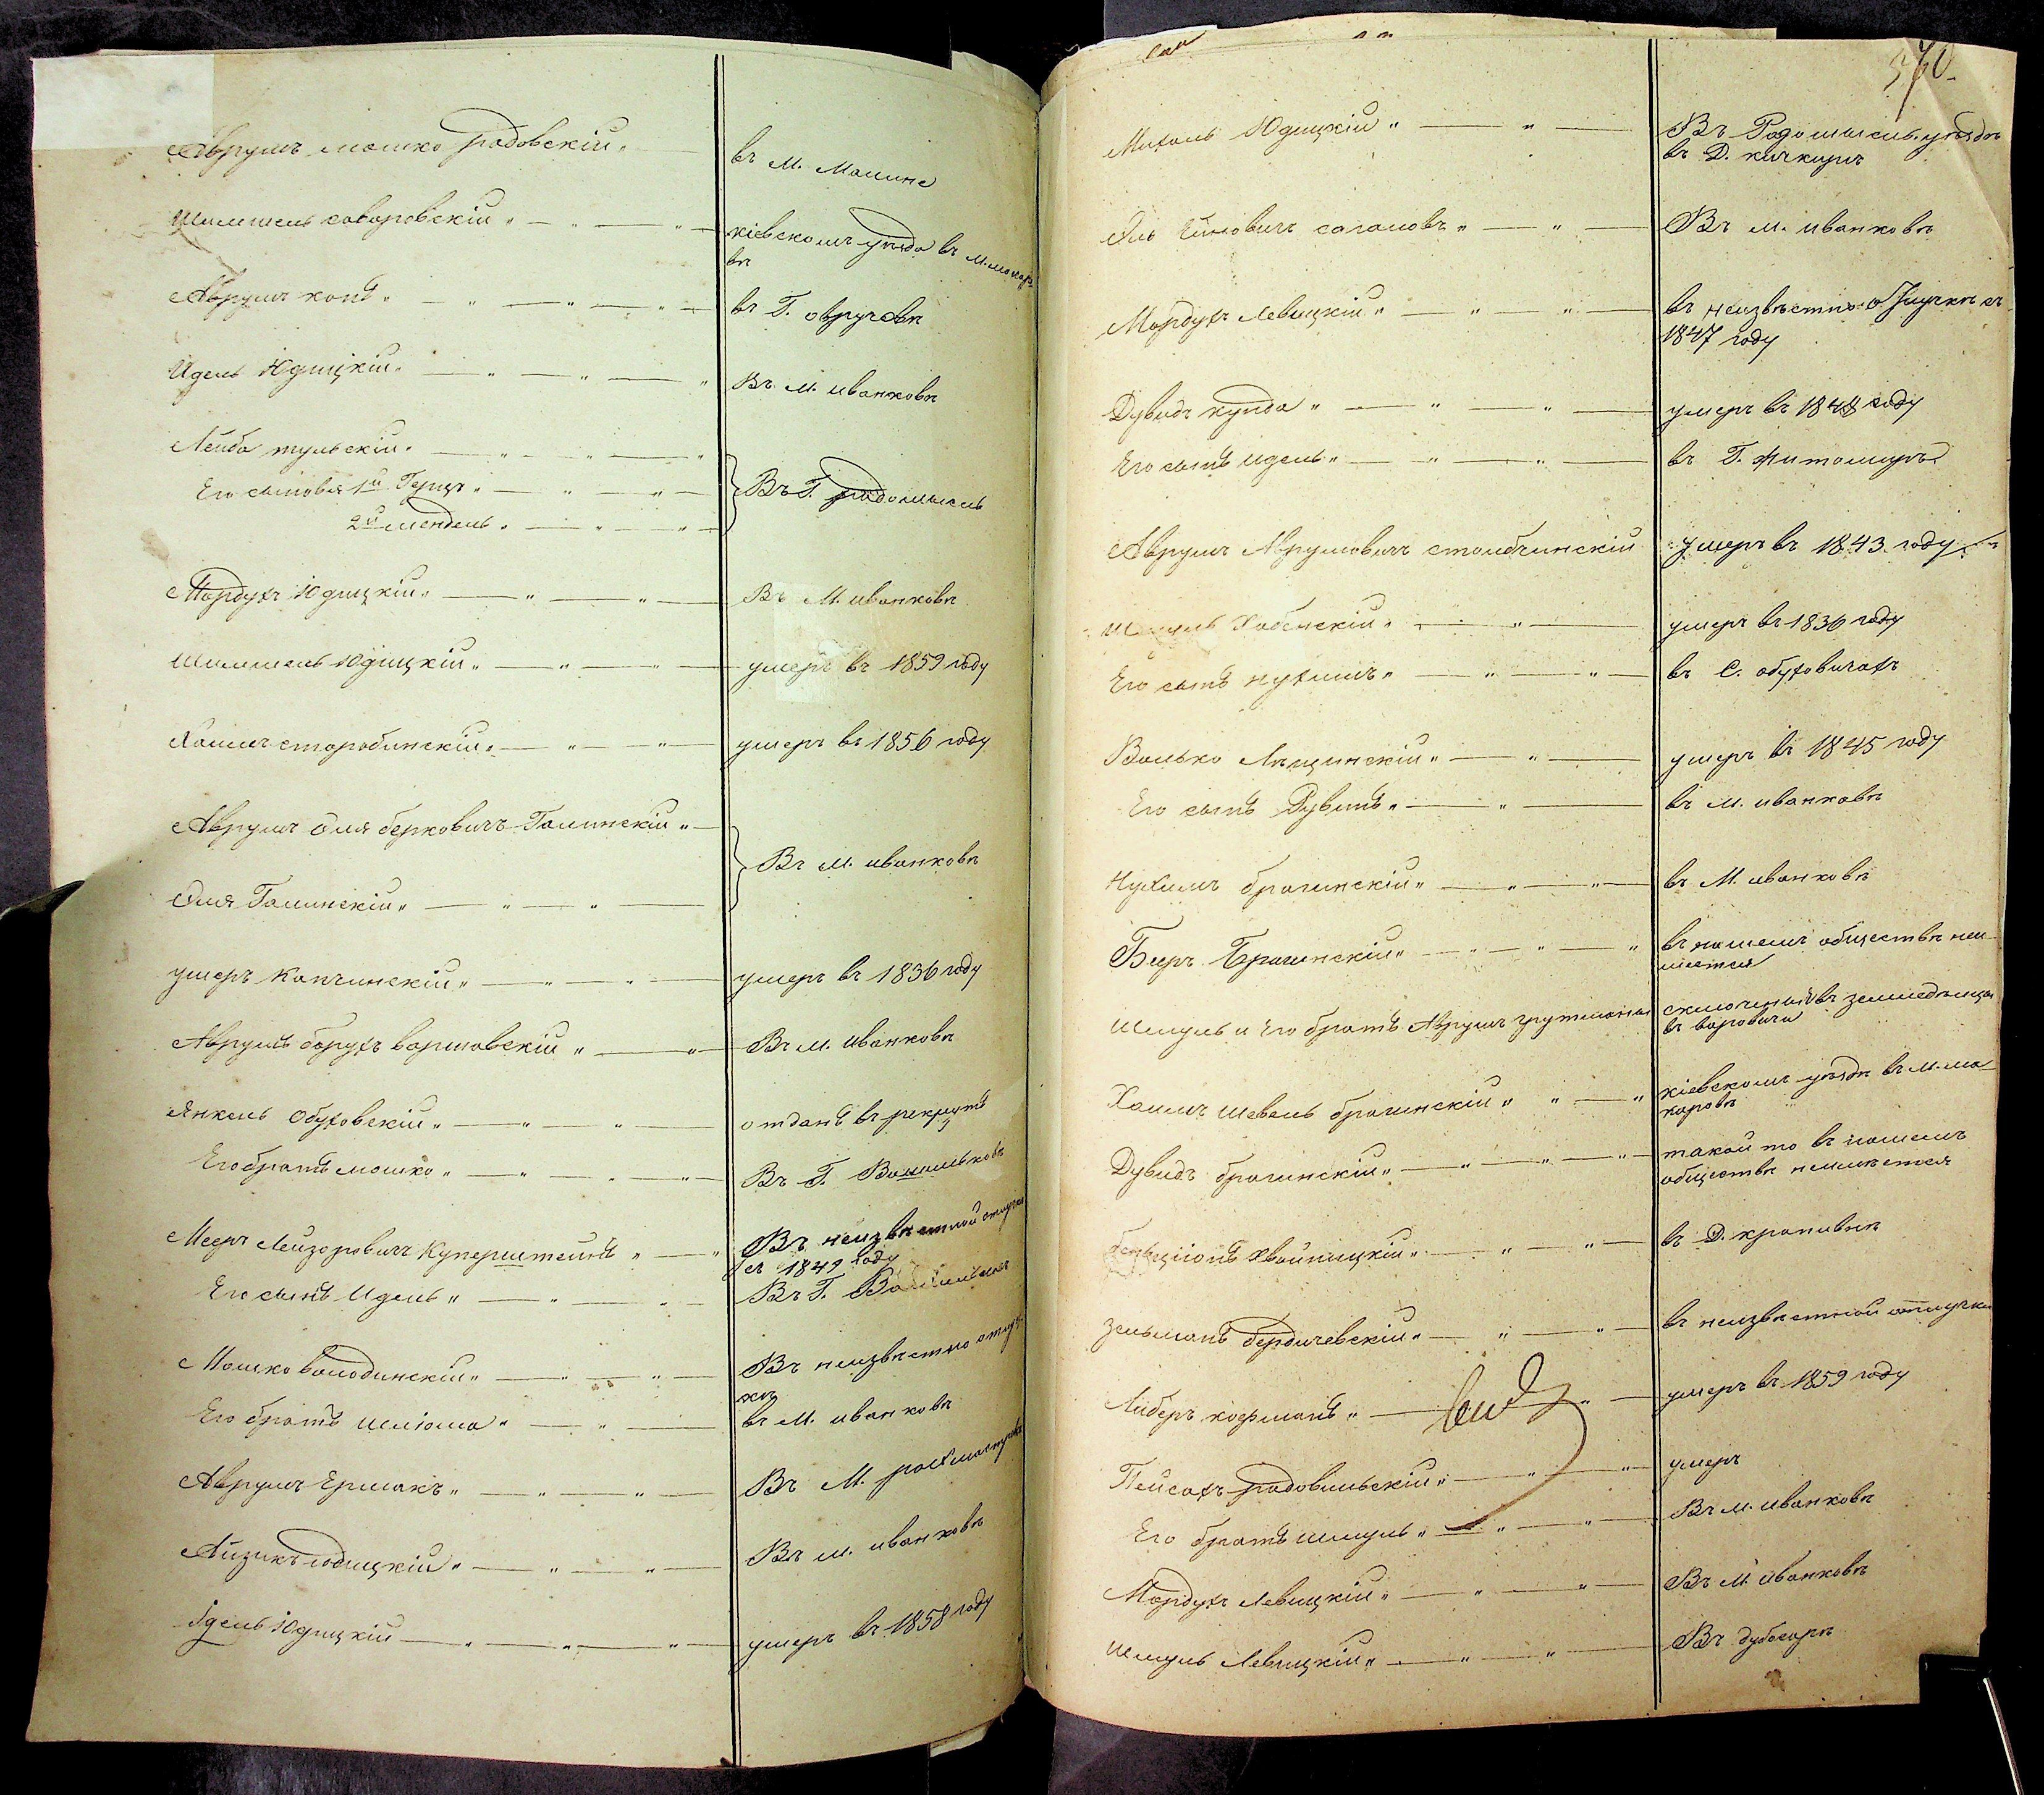 Аврумъ мошко радовскій
въ М. Малине
Шлимшель соваровскій
кіевскомъ уезда въ м. макаро
вѣ
Аврумъ копѣ
въ Г. овручевѣ
Идель Юдицкій
Въ м. иванковѣ
Лейба тульскій
Его сыновья 1й Герцъ
2й мендель
Въ Г. радомыслѣ
Мордухъ Юдицкій
Въ М. иванковѣ
Шлимшель Юдицкій
умеръ въ 1859 году
Хаимъ старобинскій
умеръ въ 1856 году
Аврумъ Эля берковичъ Галинскій
Въ м. иванковѣ
Эля Галинскій
умеръ Капчинскій
умеръ въ 1836 году
Аврумъ борухъ варшавскій
Въ м. Иванковѣ
Янкель Обуховскій
отданъ въ рекруты
Его братъ мошко
Въ Г. Васильковѣ
Мееръ Лейзоровичъ Куперштейнъ
Въ неизвѣстной отлучке
съ 1849 году
Его сынъ Идель
Въ Г.
Мошко володинскій
Въ неизвѣстно отлуч
кѣ
Его братъ шліома
въ М. иванковѣ
Аврумъ Ермакъ
Въ М.
Айзикъ юдицкій
Въ м. иванковѣ
Iдель Юдицкій
умеръ въ 1858 году
570.
Михель Юдицкій
Въ Радомысль. уѣздѣ
въ Д. кичкирѣ
Эль сагаловъ
Въ м. иванковѣ
Мордухъ Левицкій
въ неизвѣстно отлучкѣ съ
1847 году
Дувидъ купда
умеръ въ 1848 году
Его сынъ идель
въ Г. Житомирѣ
Аврумъ Аврумовичъ столбчинскій
умеръ въ 1843 году
Хабенскій
умеръ въ 1836 году
Его сынъ нухимъ
въ С. обуховичахъ
Волько Лящинскій
умеръ въ 1845 году
Его сынъ Рувинъ
въ м. иванковѣ
Нухимъ брагинскій
въ М. иванковѣ
Беръ Брагинскій
въ нашемъ обществѣ неи
мется
Шмуль и его братъ Аврумъ грутманы
въ земледѣльцы
въ варовичи
Хаимъ шевель брагинскій
кіевскомъ уѣздѣ въ м. ма
каровѣ
Дувидъ брагинскій
такой то въ нашемъ
обществѣ неимѣется
бенціонъ Хвойницкій
въ Д. крапивнѣ
зельманъ бердичевскій
въ неизвѣстной отлучки
Либеръ кофманъ
умеръ въ 1859 году
Пейсахъ радовильскій
умеръ
Его братъ шмуль
Въ м. иванковѣ
Мордухъ Левицкій
Въ М. иванковѣ
Шмуль Левицкій
Въ дубосарѣ